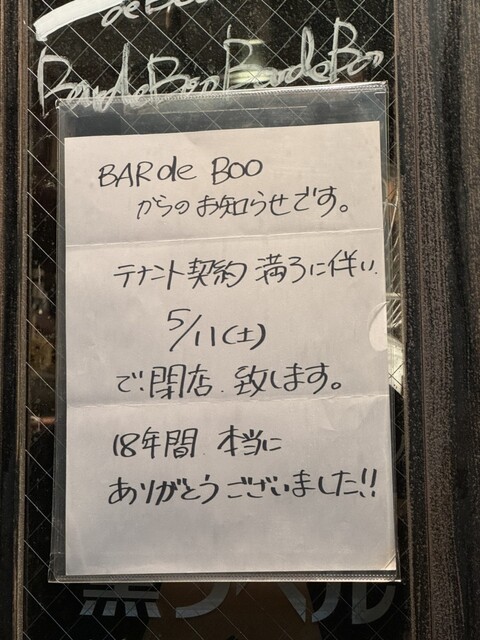 BARdeBooBardeBoo
BAR de BOO
からのお知らせです。
テナント契約満了に伴い.
5/11(土)
で閉店致します。
18年間 本当に
ありがとうございました!!
黒ラベル